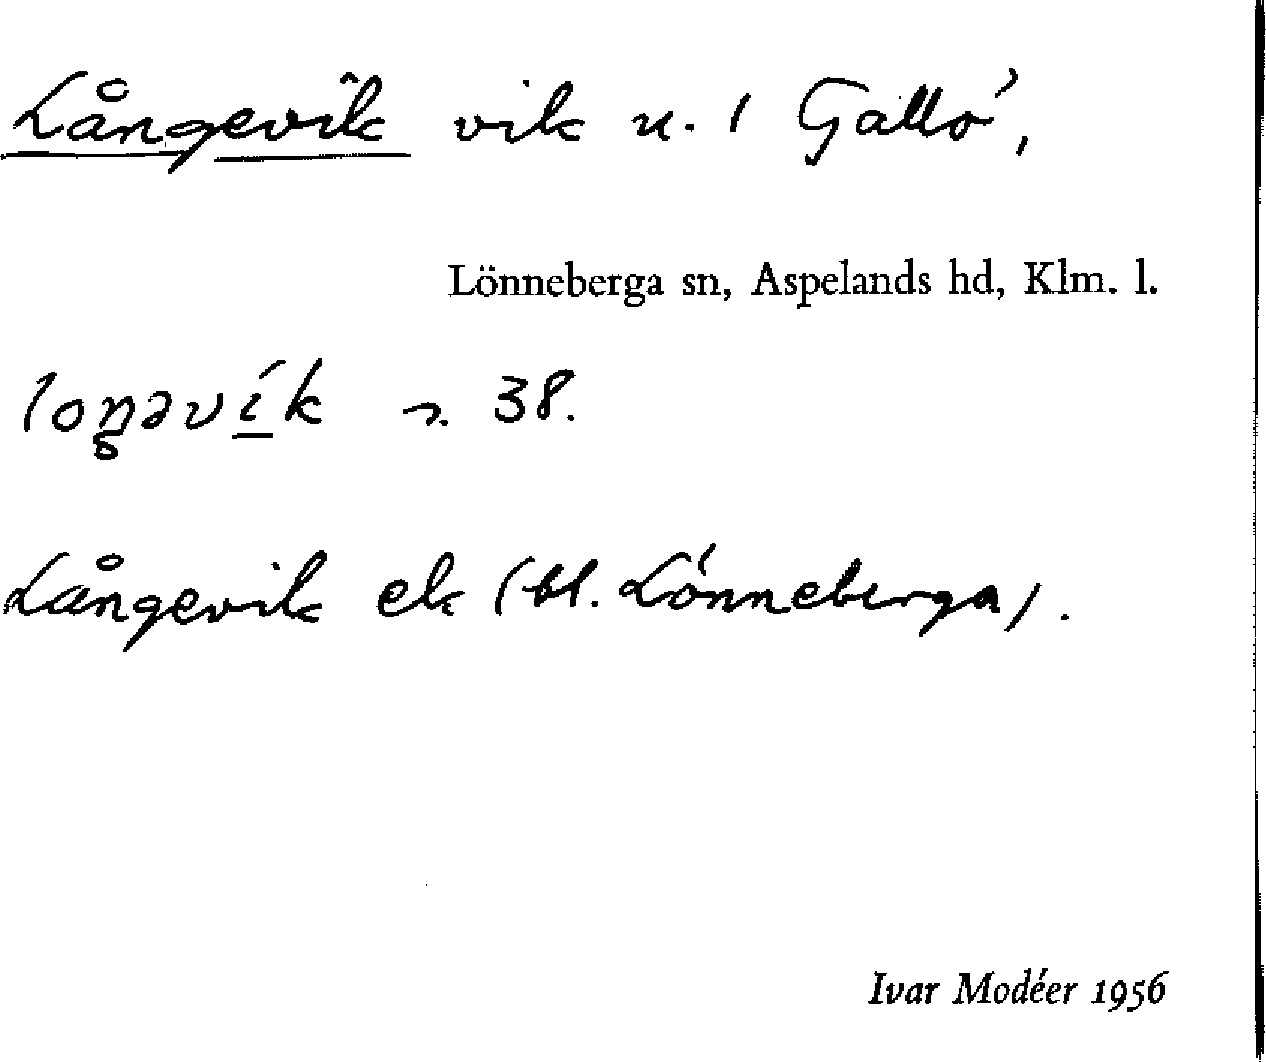 Långevik vik u. i Gallö,
Lönneberga sn, Aspelands hd, Klm. l.
loŋəvík 38.
Långevik ek (bl. Lönneberga).
Ivar Modéer 1956